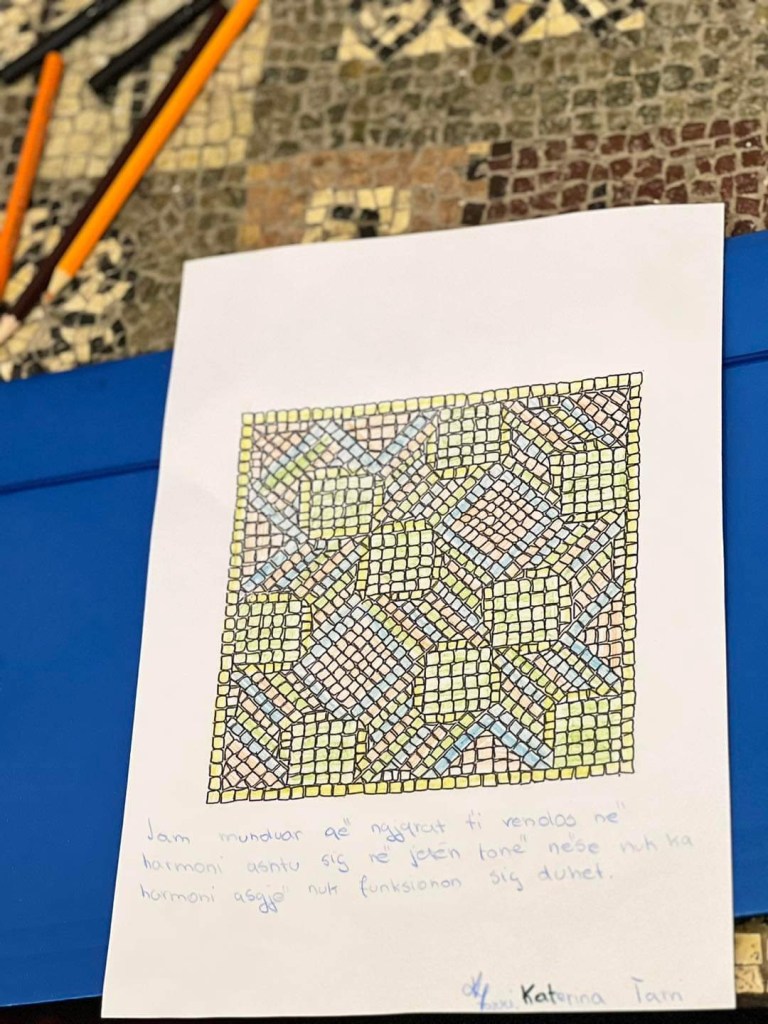 Jam munduar që ngjyrat ti vendos në
harmoni ashtu siç në jetën tonë nëse nuk ka
harmoni asgjë nuk funksionon siç duhet.
Katerina Tam